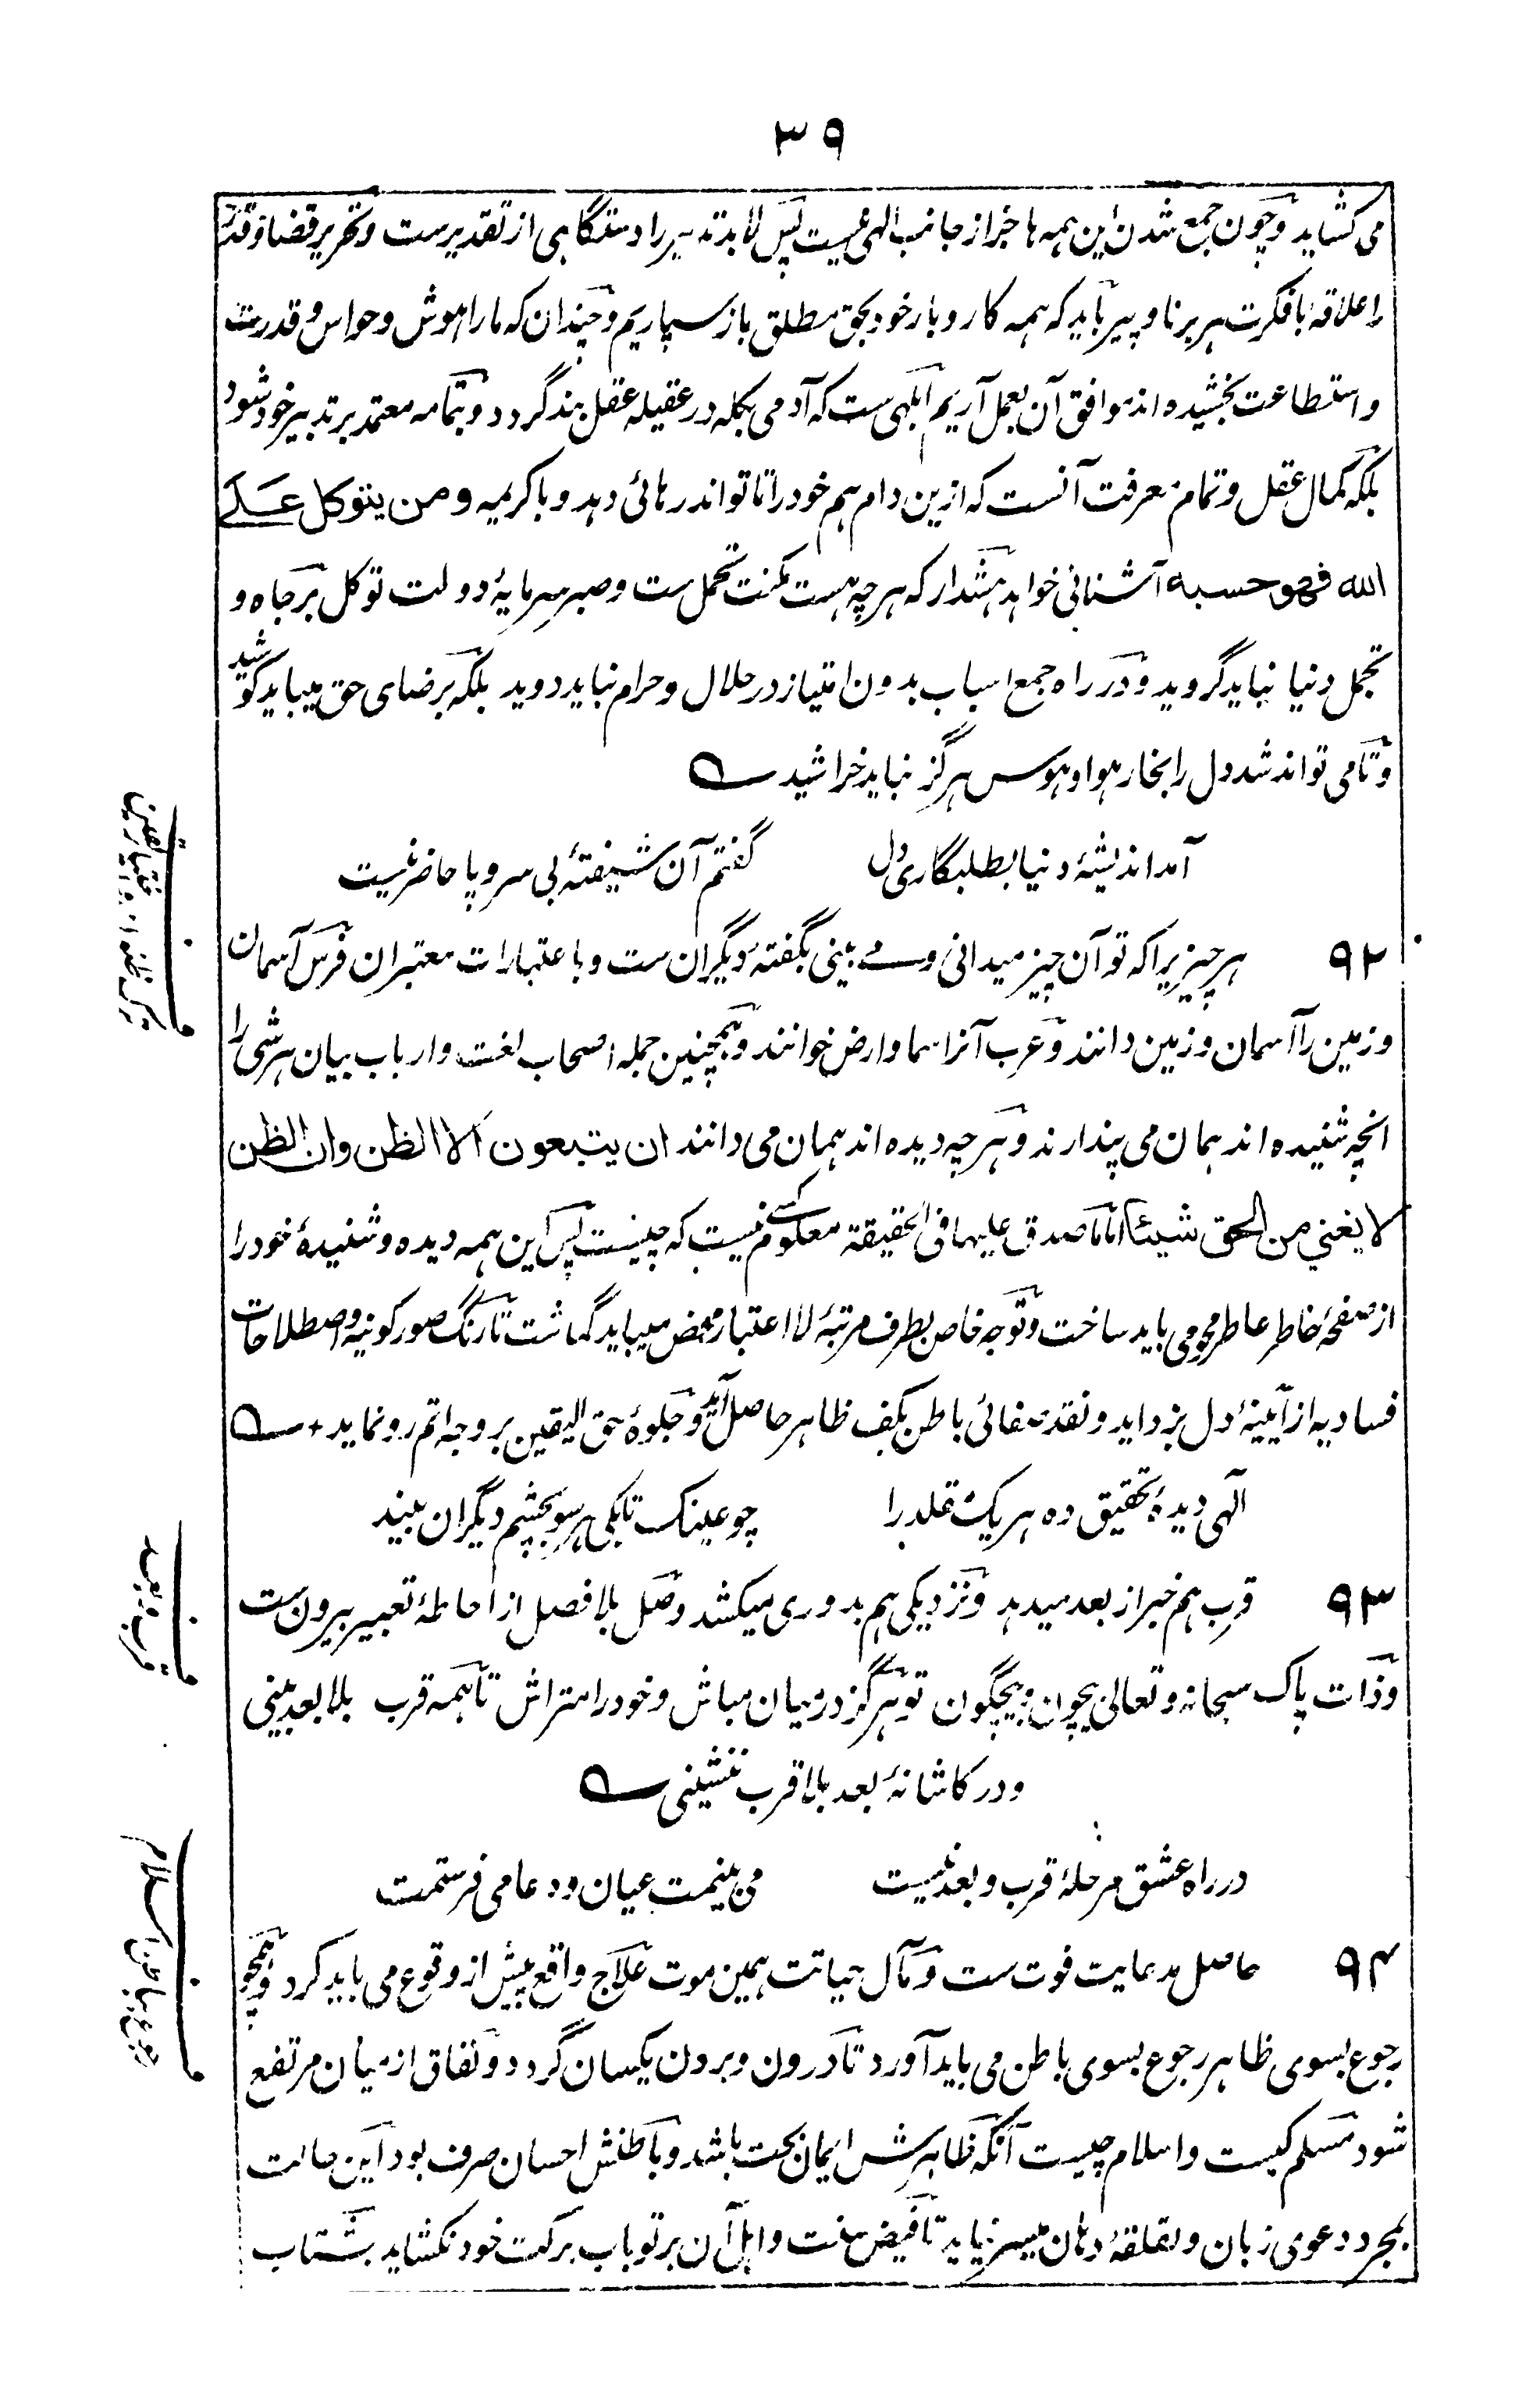 ٣٩
می کشاید و چون جمع شدن این همه ها خبر از جانب الهی نیست پس لابد تدبیر را دستگاهی از تقدیرست و تحریر قضا و قدر
را علاقهٔ با فکرت هر برنا و پیر باید که همه کار و بار خود بحق مطلق باز سپاریم و چندان که ما را هوش و حواس و قدرت
و استطاعت بخشیده اند موافق آن بعمل آریم ابلهی ست که آدمی بکله در عقیله عقل بند گردد و بتمامه معتمد بر تدبیر خود شود
بلکه کمال عقل و تمام معرفت آنست که ازین دام هم خود را تا تواند رهائی دهد و با کریمه و من یتوکل علے
الله فهو حسبه آشنائی خواهد هشدار که هر چه هست مکنت تحمل ست و صبر سرمایهٔ دولت توکل بر جاه و
تجمل دنیا نباید گروید و در راه جمع اسباب بدون امتیاز در حلال و حرام نباید دوید بلکه بر رضای حق میباید کوشید
و تا می تواند شد دل را بخار هوا و هوس هرگز نباید خراشید
آمد اندیشهٔ دنیا بطلبگاری دل گفتم آن شیفتهٔ بی سر و پا حاضر نیست
٩٢ هر چیز یرا که تو آن چیز میدانی و مے بینی بگفتهٔ دیگران ست و با عتبارات معتبران فرس آسمان
و زمین را آسمان و زمین دانند و عرب آنرا سما و ارض خوانند و همچنین جمله اصحاب لغت و ارباب بیان هر شی را
انچه شنیده اند همان می پندارند و هر چه دیده اند همان می دانند ان یتبعون الا الظن وان الظن
لا یغني من الحق شیئا اما ما صدق علیها فی الحقیقة معلوم کسے نیست که چیست پس این همه دیده و شنیدهٔ خود را
از صفحهٔ خاطر عاطر محو می باید ساخت و توجه خاص بطرف مرتبهٔ لا اعتبار محض میباید گماشت تا رنگ صور کونیه و اصطلاحات
فسادیه از آیینهٔ دل بزداید و نقد صفائی باطن بکف ظاهر حاصل آید و جلوهٔ حق الیقین بر وجه اتم رو نماید
الهی دیدهٔ تحقیق ده هر یک مقلد را چو عینک تا بکی هر سو بچشم دیگران بیند
٩٣ قرب هم خبر از بعد میدهد و نزدیکی هم بدوری میکشد وصل بلا فصل از احاطهٔ تعبیر بیرون ست
و ذات پاک سبحانه و تعالی بیچون و بیچگون تو هرگز در میان مباش و خود را متراش تا همه قرب بلا بعد بینی
و در کاشانهٔ بعد بلا قرب ننشینی
در راه عشق مرحلهٔ قرب و بعد نیست می بینمت عیان و دعا می فرستمت
٩۴ حاصل مدعایت فوت ست و مآل حیاتت همین موت علاج واقع پیش از وقوع می باید کرد و همچو
رجوع بسوی ظاهر رجوع بسوی باطن می باید آورد تا درون و برون یکسان گردد و نفاق از میان مرتفع
شود مسلم کیست و اسلام چیست آنکه ظاهرش ایمان بحت باشد و باطنش احسان صرف بود این حالت
بمجرد دعوی زبان و لقلقهٔ دهان میسر نیاید تا فیض سنت و اهل آن بر تو باب برکت خود نکشاید بشتاب
قرب و بعد
رجوع بباطن اسلام